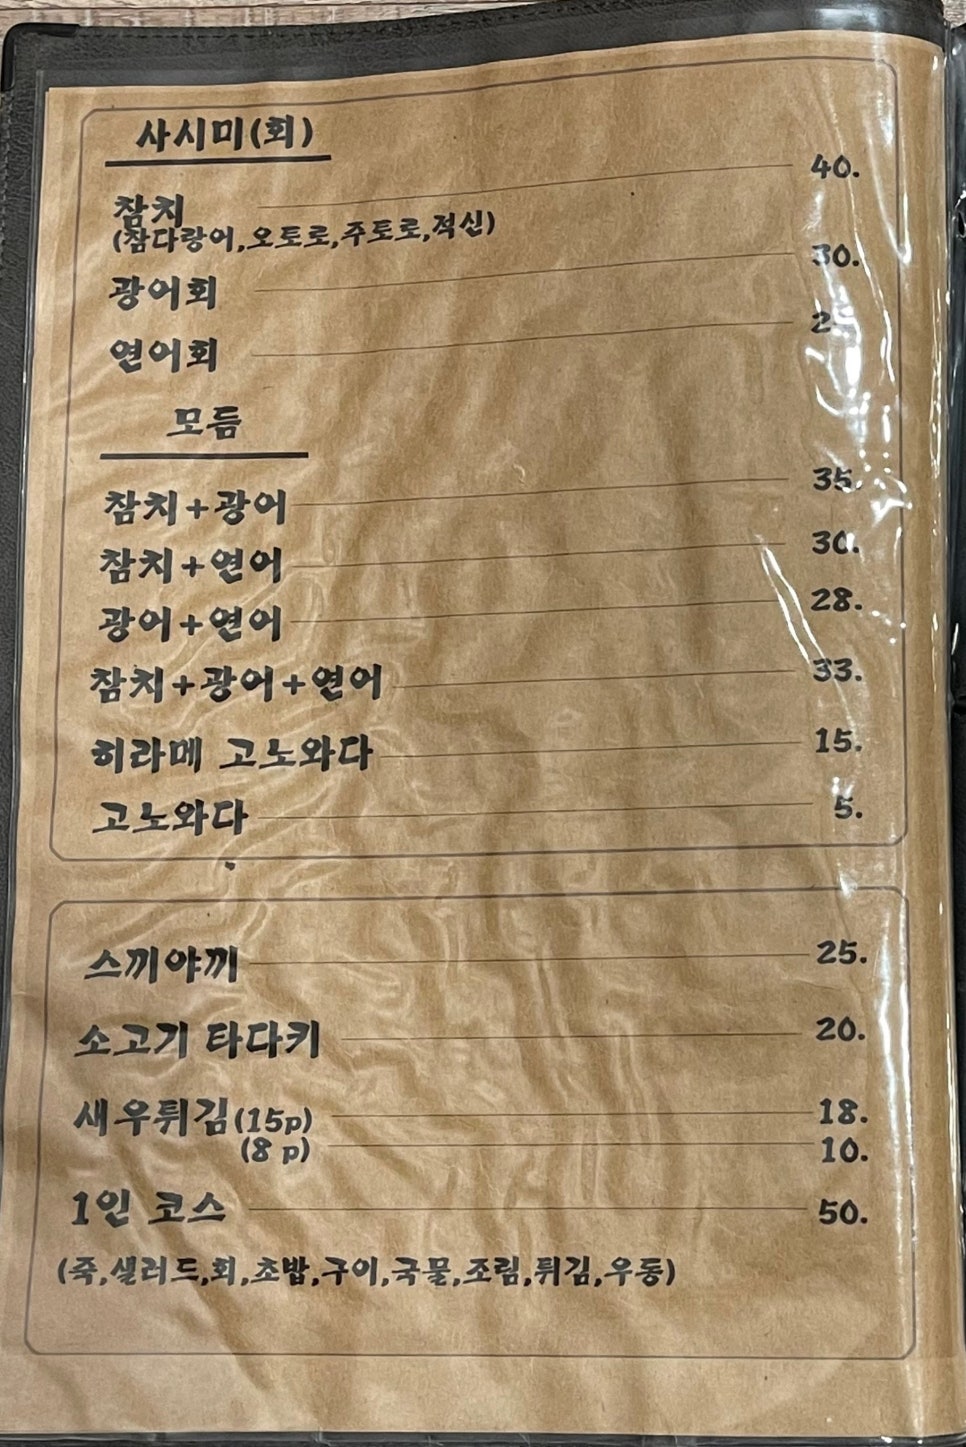 사시미(회)
참치 40.
(참다랑어,오토로,주토로,적신)
광어회 30.
연어회
모듬
참치+광어 35.
참치+연어 30.
광어+연어 28.
참치+광어+연어 33.
히라메 고노와다 15.
고노와다 5.
스끼야끼 25.
소고기 타다키 20.
새우튀김(15p) 18.
(8 p) 10.
1인 코스 50.
(죽,샐러드,회,초밥,구이,국물,조림,튀김,우동)